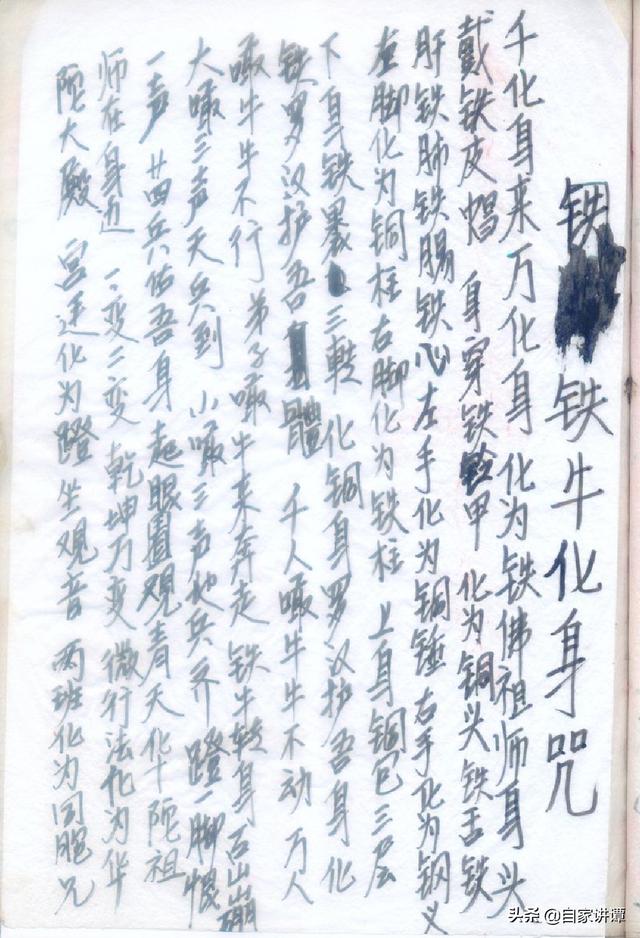 铁铁牛化身咒
千化身来万化身 化为铁佛祖师身头
戴铁皮帽 身穿铁铃甲 化为铜头铁舌铁
肝铁肺铁肠铁心左手化为铜锤右手化为钢叉
左脚化为铜柱右脚化为铁柱 上身铜包三层
下身铁裹三转化铜身罗汉护吾身化
铁罗汉护吾體 千人喝牛牛不动 万人
喝牛牛不行 弟子喝牛来奔走 铁牛转身石山崩
大喝三声天兵到 小喝三声地兵齐 蹬一脚
一声 廿四兵佑吾身起眼圍观青天化十陀祖
师在身边 一变二变乾坤万变 微行法化为华
陀大殿 宫廷化为蹬坐观音 两班化为同胞兄
头条 @自家讲谭